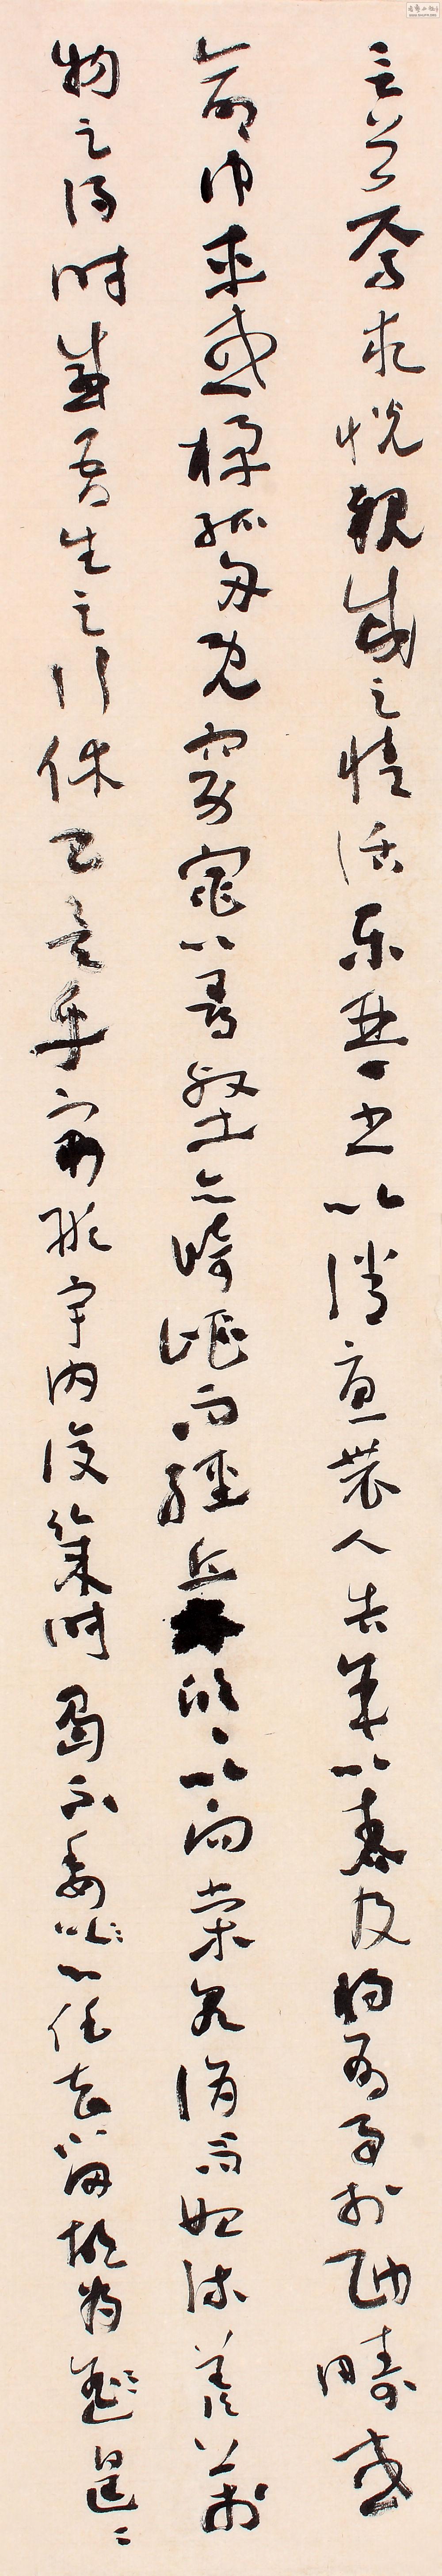 言兮焉求悦親戚之情话乐琴书以消憂農人告余以春及将有事於西畴或
命巾車或棹孤舟既窈窕以尋壑亦崎岖而經丘木欣〻以向荣泉涓而始流羨萬
物之得时感吾生之行休已矣乎寓形宇内復幾时曷不委心任去留胡为遑〻